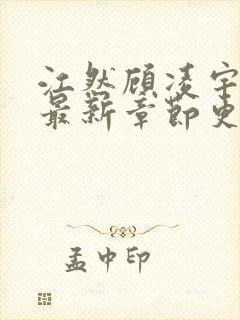 江然顾凌宇
最新章节更
孟中印